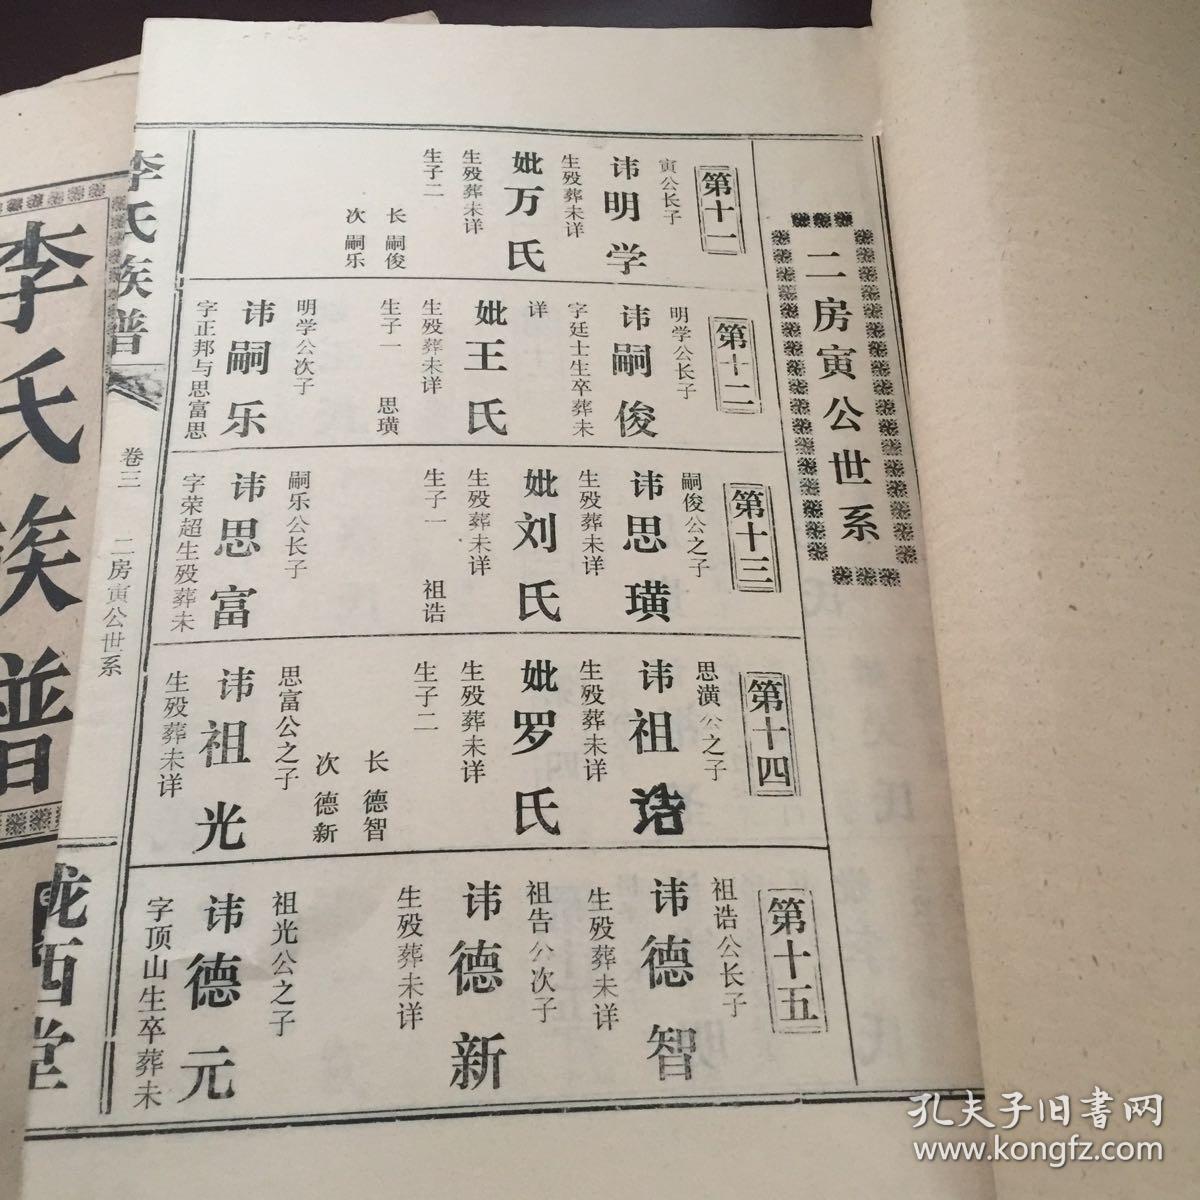 二房寅公世系
第十一
寅公长子
讳明学
生殁葬未详
妣万氏
生殁葬未详
生子二
长 嗣俊
次 嗣乐
第十二
明学公长子
讳嗣俊
字廷士生卒葬未
详
妣王氏
生殁葬未详
生子一 思璜
明学公次子
讳嗣乐
字正邦与思富思
第十三
嗣俊公之子
讳思璜
生殁葬未详
妣刘氏
生殁葬未详
生子一 祖诰
嗣乐公长子
讳思富
字荣超生殁葬未
第十四
思潢公之子
讳祖诰
生殁葬未详
妣罗氏
生殁葬未详
生子二
长 德智
次 德新
思富公之子
讳祖光
生殁葬未详
第十五
祖诰公长子
讳德智
生殁葬未详
祖告公次子
讳德新
生殁葬未详
祖光公之子
讳德元
字顶山生卒葬未
李氏族谱
卷三
二房寅公世系
陇西堂
李氏族谱
孔夫子旧书网
www.kongfz.com